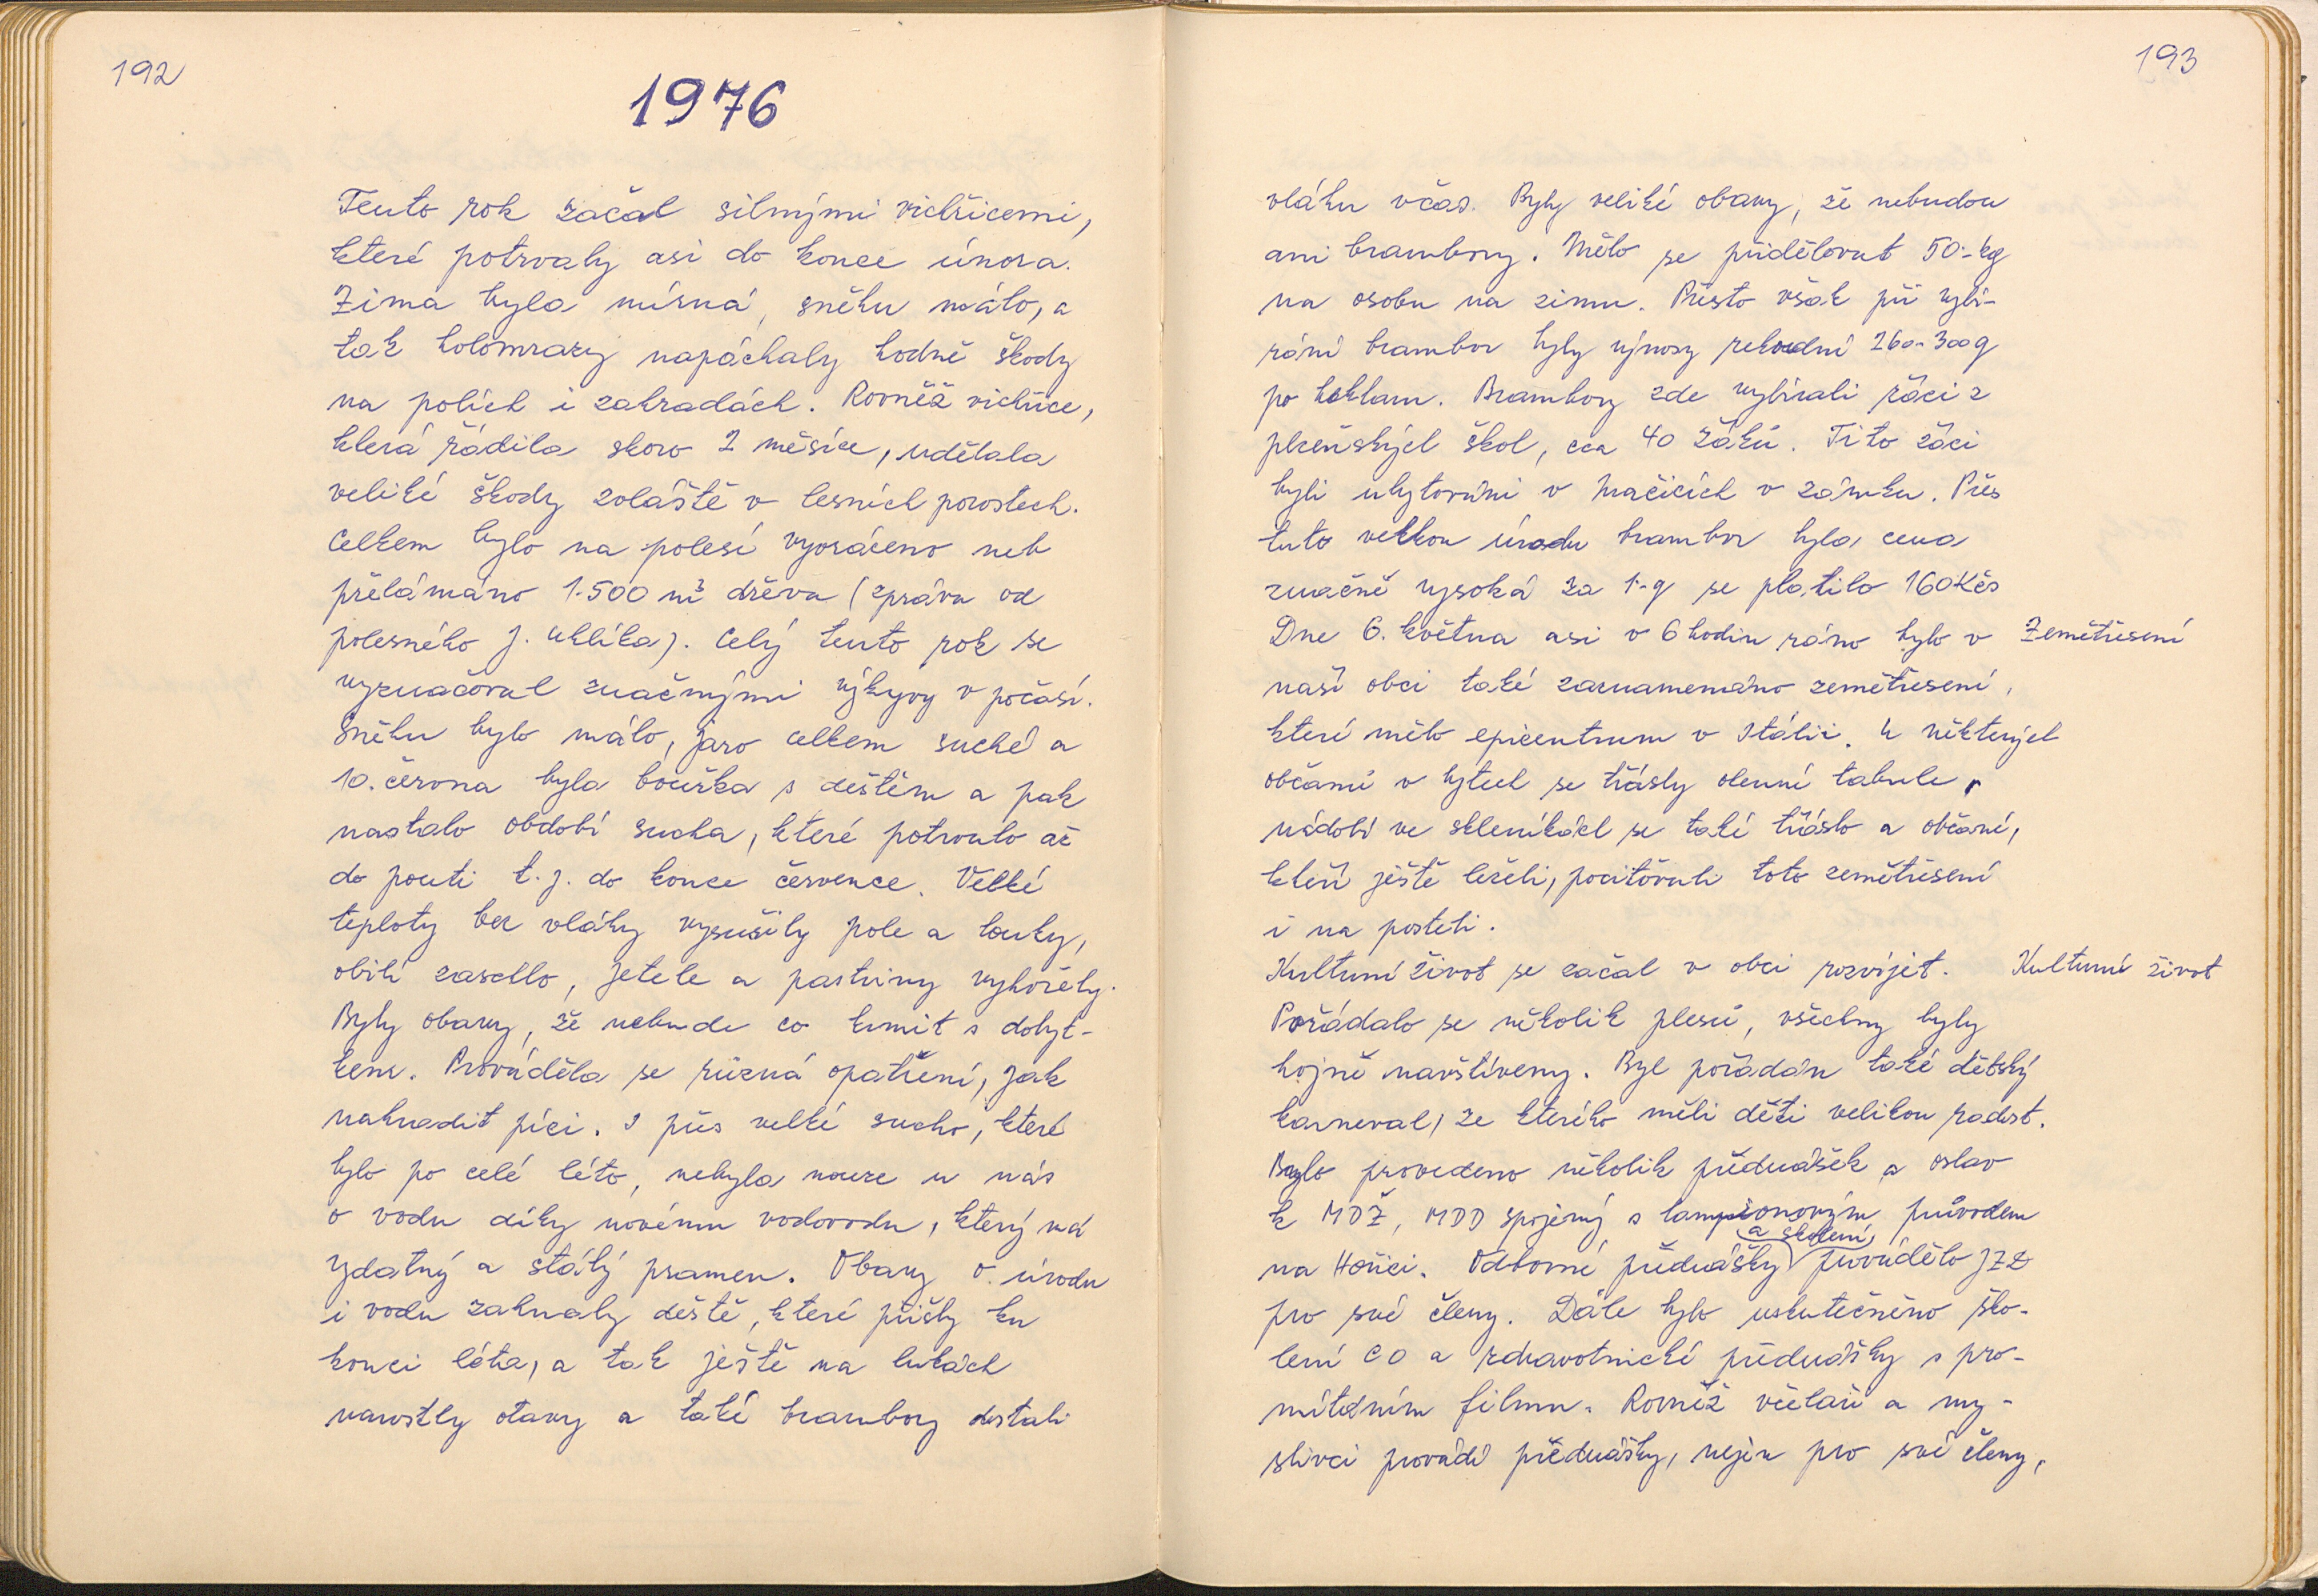 192
1976
Tento rok začal silnými vichřicemi,
které potrvaly asi do konce února.
Zima byla mírná, sněhu málo, a
tak holomrazy napáchaly hodně škody
na polích i zahradách. Rovněž vichřice,
která řádila skoro 2 měsíce, udělala
veliké škody zvláště v lesních porostech.
Celkem bylo na polesí vyvráceno neb
přelámáno 1.500 m³ dřeva (zpráva od
polesného J. Uhlíka). Celý tento rok se
vyznačoval značnými výkyvy v počasí.
Sněhu bylo málo, jaro celkem suché a
10. června byla bouřka s deštěm a pak
nastalo období sucha, které potrvalo až
do pouti t. j. do konce července. Velké
teploty bez vláhy vysušily pole a louky,
obilí zaschlo, jetele a pastviny vyhořely.
Byly obavy, že nebude co krmit s dobyt-
kem. Prováděla se různá opatření, jak
nahradit píci. I přes velké sucho, které
bylo po celé léto, nebyla nouze u nás
o vodu díky novému vodovodu, který má
vydatný a stálý pramen. Obavy o úrodu
i vodu zahnaly deště, které přišly ku
konci léta, a tak ještě na lukách
narostly otavy a také brambory dostali
193
vláhu včas. Byly veliké obavy, že nebudou
ani brambory. Mělo se přidělovat 50.- kg
na osobu na zimu. Přesto však při vybí-
rání brambor byly výnosy rekordní 260-300 q
po hektaru. Brambory zde vybírali žáci z
plzeňských škol, cca 40 žáků. Tito žáci
byli ubytováni v Mačicích v zámku. Přes
tuto velkou úrodu brambor byla cena
značně vysoká za 1.- q se platilo 160 Kčs
Dne 6. května asi v 6 hodin ráno bylo v
Zemětřesení
naší obci také zaznamenáno zemětřesení,
které mělo epicentrum v Itálii. U některých
občanů v bytech se třásly okenní tabule,
nádobí ve sklenikách se také třáslo a občané,
kteří ještě leželi, pociťovali toto zemětřesení
i na posteli.
Kulturní život se začal v obci rozvíjet.
Kulturní život
Pořádalo se několik plesů, všechny byly
hojně navštíveny. Byl pořádán také dětský
karneval, ze kterého měli děti velikou radost.
Bylo provedeno několik přednášek a oslav
k MDŽ, MDD spojený s lampionovým průvodem
a školení
na Hořici. Odborné přednášky provádělo JZD
pro své členy. Dále bylo uskutečněno ško-
lení CO a zdravotnické přednášky s pro-
mítáním filmu. Rovněž včelaři a my-
slivci provádí přednášky, nejen pro své členy,